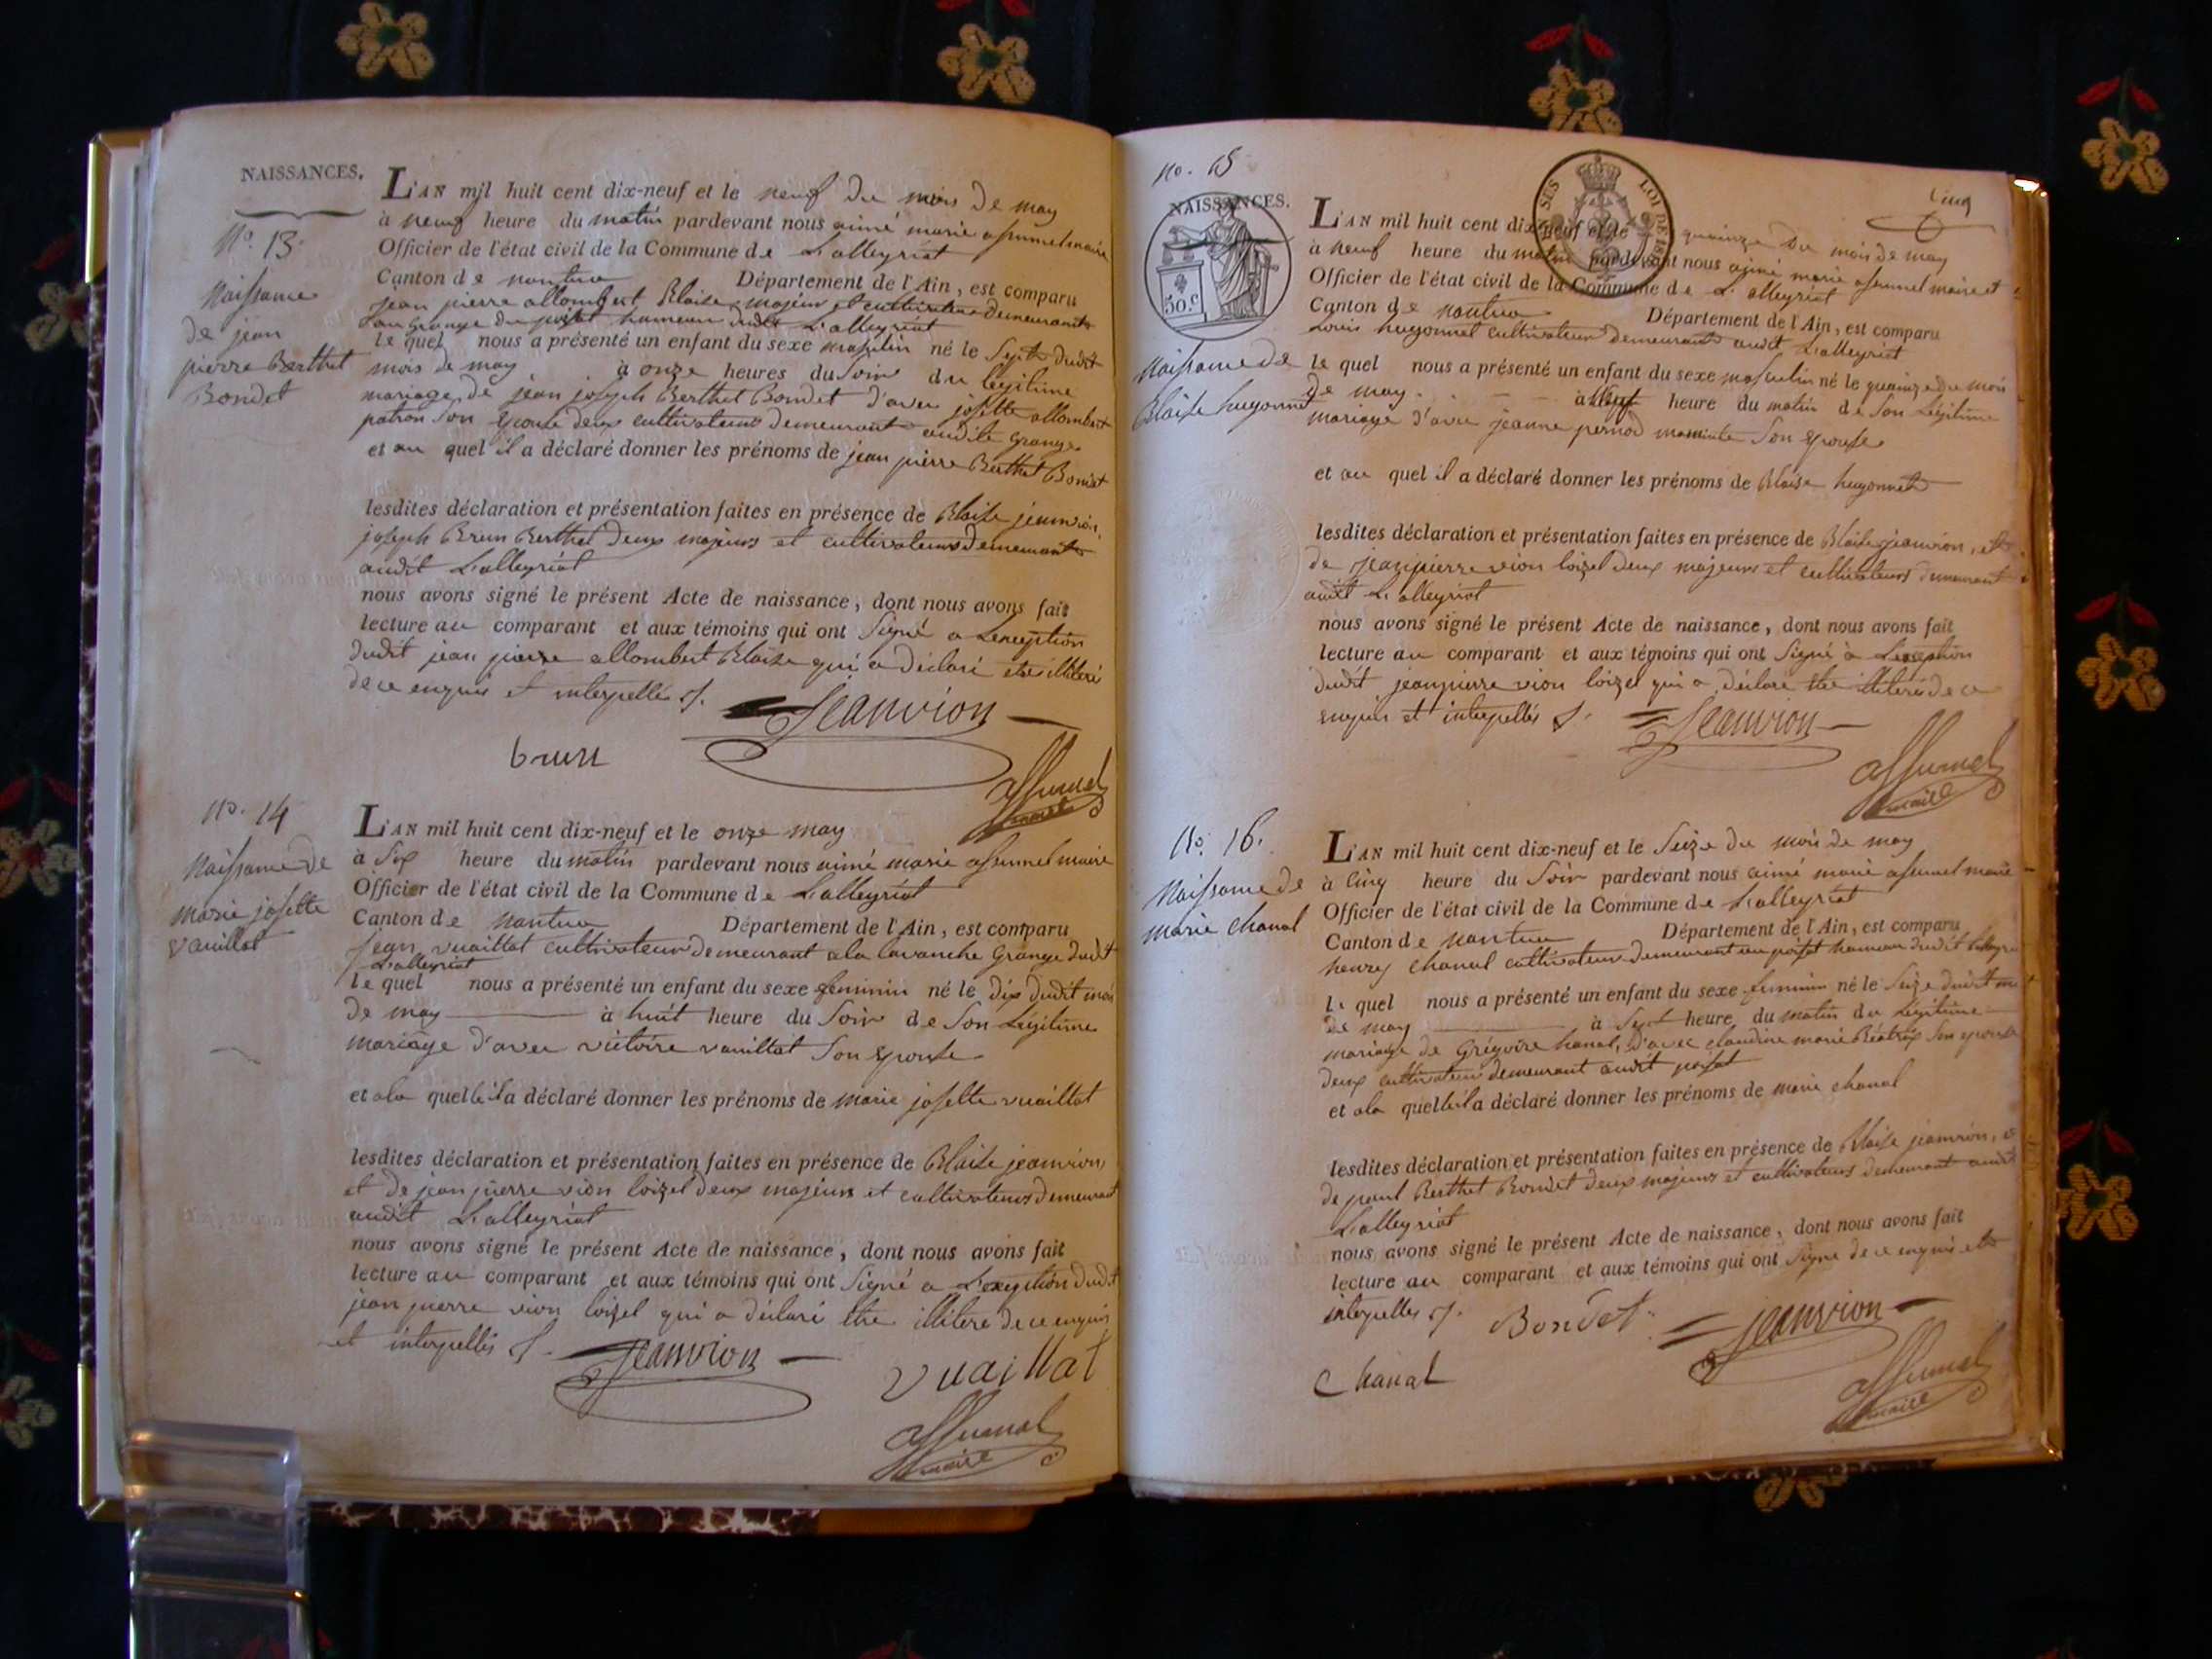 NAISSANCES.
L'AN mil huit cent dix-neuf et le neuf du mois de may
à neuf heure du matin pardevant nous aimé marie assumel maire
Officier de l'état civil de la Commune de L'alleyriat
Canton de nantua Département de l'Ain, est comparu
jean pierre allombert Blaise majeur et cultivateur demeurant
au Grange du poisat hameau dudit L'alleyriat
le quel nous a présenté un enfant du sexe masculin né le Sept dudit
mois de may à onze heures du Soir du legitime
mariage de jean joseph Berthet Bondet d'avec josette allombert
patron Son epouse deux cultivateurs demeurant audite Grange
et au quel il a déclaré donner les prénoms de jean pierre Berthet Bondet
lesdites déclaration et présentation faites en présence de Blaise jeanvion,
joseph Brun Berthet deux majeurs et cultivateurs demeurant
audit L'alleyriat
nous avons signé le présent Acte de naissance, dont nous avons fait
lecture au comparant et aux témoins qui ont Signé a L'exception
dudit jean pierre allombert Blaise qui a déclaré etre illiteré
de ce enquis et interpellés
Jeanvion
brun
assumel
maire
No. 13.
Naissance
de jean
pierre Berthet
Bondet
No. 14
Naissance de
marie josette
vauillat
L'AN mil huit cent dix-neuf et le onze may
à Six heure du matin pardevant nous aimé marie assumel maire
Officier de l'état civil de la Commune de L'alleyriat
Canton de nantua Département de l'Ain, est comparu
jean vuaillat cultivateur demeurant a la lavanche Grange dudit
L'alleyriat
le quel nous a présenté un enfant du sexe feminin né le dix dudit mois
de may à huit heure du Soir de Son Légitime
mariage d'avec victoire vauillat Son epouse
et a la quelle il a déclaré donner les prénoms de marie josette vuaillat
lesdites déclaration et présentation faites en présence de Blaise jeanvion,
et de jean pierre vion loizel deux majeurs et cultivateurs demeurant
audit L'alleyriat
nous avons signé le présent Acte de naissance, dont nous avons fait
lecture au comparant et aux témoins qui ont Signé a L'exception dudit
jean pierre vion loizel qui a déclaré etre illiteré de ce enquis
et interpellés
Jeanvion
vuaillat
assumel
maire
No. 15
cinq
NAISSANCES.
50 c.
LOI DE 18
L'AN mil huit cent dix-neuf et le quinze du mois de may
à neuf heure du matin pardevant nous aimé marie assumel maire et
Officier de l'état civil de la Commune de L'alleyriat
Canton de nantua Département de l'Ain, est comparu
Louis hugonnet cultivateur demeurant audit L'alleyriat
le quel nous a présenté un enfant du sexe masculin né le quinze du mois
de may à heure du matin de Son Légitime
mariage d'avec jeanne pernod Son epouse
et au quel il a déclaré donner les prénoms de Blaise hugonnet
lesdites déclaration et présentation faites en présence de Blaise jeanvion, et
de jean pierre vion loizel deux majeurs et cultivateurs demeurant
audit L'alleyriat
nous avons signé le présent Acte de naissance, dont nous avons fait
lecture au comparant et aux témoins qui ont Signé à L'exception
dudit jean pierre vion loizel qui a déclaré etre illiteré de ce
enquis et interpellés
Jeanvion
assumel
maire
Naissance de
Blaise hugonnet
No. 16.
Naissance de
marie chanal
L'AN mil huit cent dix-neuf et le Seize du mois de may
à cinq heure du Soir pardevant nous aimé marie assumel maire
Officier de l'état civil de la Commune de L'alleyriat
Canton de nantua Département de l'Ain, est comparu
henry chanal cultivateur demeurant au poisat hameau dudit
le quel nous a présenté un enfant du sexe feminin né le Seize dudit
de may à Sept heure du matin du Légitime
mariage de Grégoire hanal, d'avec claudine marie Béatrix Son epouse
deux cultivateurs demeurant audit poisat
et a la quelle il a déclaré donner les prénoms de marie chanal
lesdites déclaration et présentation faites en présence de Blaise jeanvion, et
de paul Berthet Bondet deux majeurs et cultivateurs demeurant audit
L'alleyriat
nous avons signé le présent Acte de naissance, dont nous avons fait
lecture au comparant et aux témoins qui ont Signé de ce enquis et
interpellés
Bondet
Jeanvion
Chanal
assumel
maire